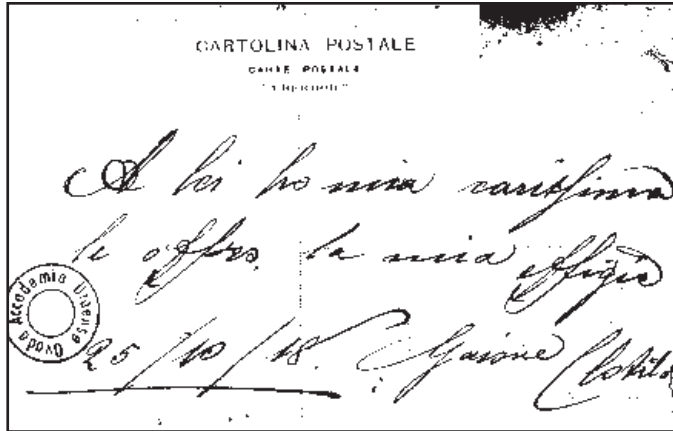 CARTOLINA POSTALE
CARTE POSTALE
A lei ho mia carissima
le offro la mia effigie
25/10/18. Gaione Clotild
Accademia Urbense Ovada